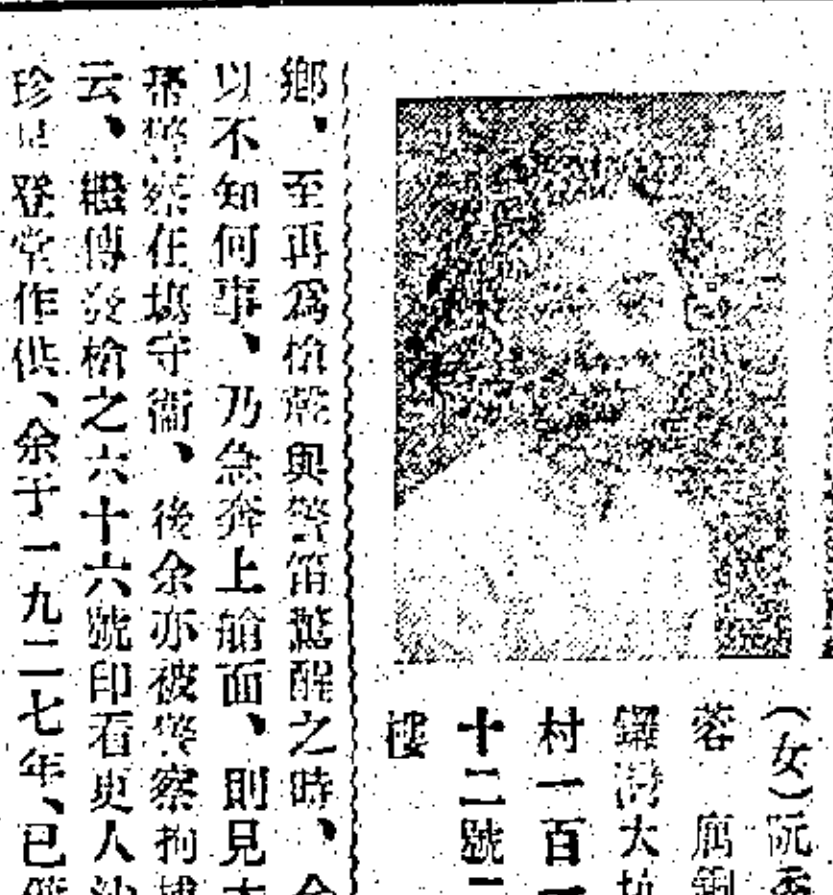 (女)阮
蓉 居銅
鑼灣大坑
村一百一
十二號二
樓
鄉、至再為槍聲與警笛驚醒之時、余
以不知何事、乃急奔上艙面、則見大
帮警察在塲守衞、後余亦被警察拘捕
云、繼傳發槍之六十六號印看更人沙
珍星登堂作供、余于一九二七年、已